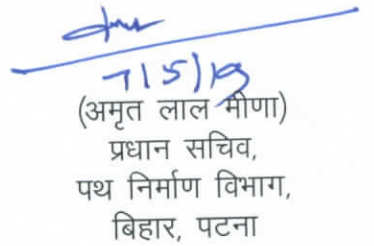 7/5/19
(अमृत लाल मीणा)
प्रधान सचिव,
पथ निर्माण विभाग,
बिहार, पटना